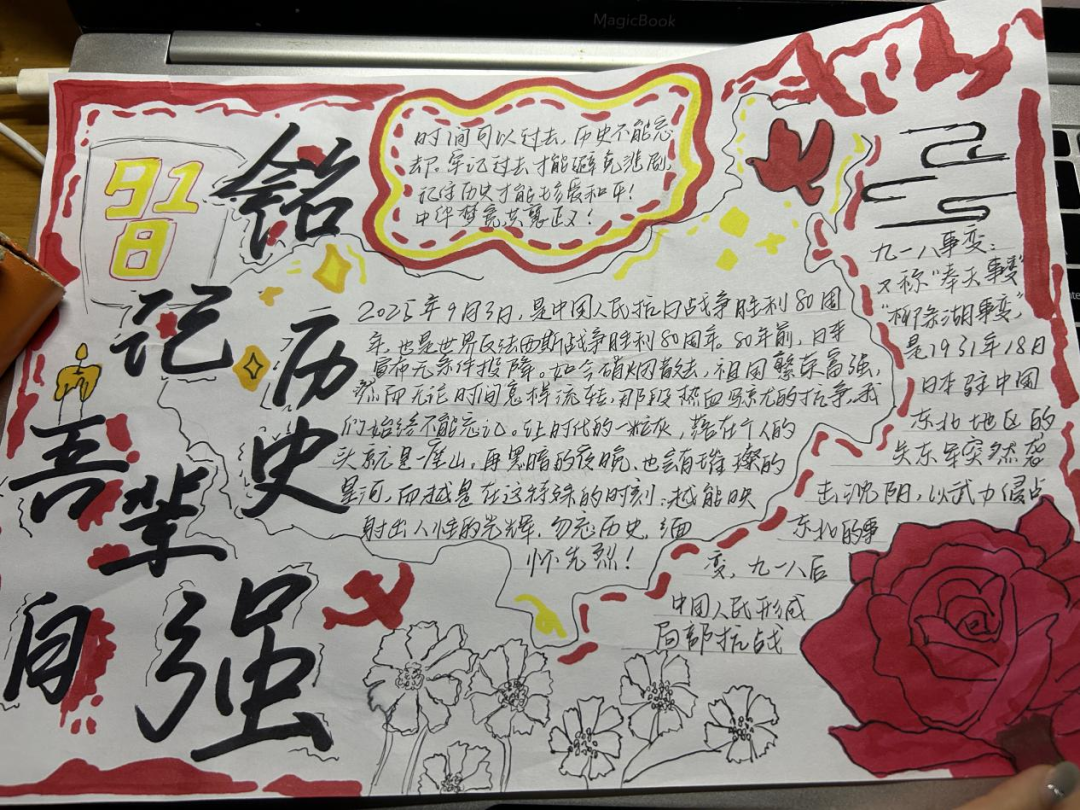 MagicBook
918
铭记历史
吾辈自强
时间可以过去,历史不能忘
却。牢记过去才能避免悲剧,
记住历史才能珍爱和平!
中华梦竟共襄正义!
2025年9月3日,是中国人民抗日战争胜利80周
年,也是世界反法西斯战争胜利80周年。80年前,日本
宣布无条件投降。如今硝烟散去,祖国繁荣富强,
然而无论时间怎样流转,那段热血的抗争,我
们始终不能忘记。让时代的一粒灰,落在个人的
头就是一座山,再黑暗的夜晚,也会有璀璨的
星河,而越是在这特殊的时刻,越能映
射出人性的光辉,勿忘历史,缅
怀先烈!
九一八事变:
又称“奉天事变”
“柳条湖事变”
是1931年18日
日本驻中国
东北地区的
关东军突然袭
击沈阳,以武力侵占
东北的事
变,九一八后
中国人民形成
局部抗战